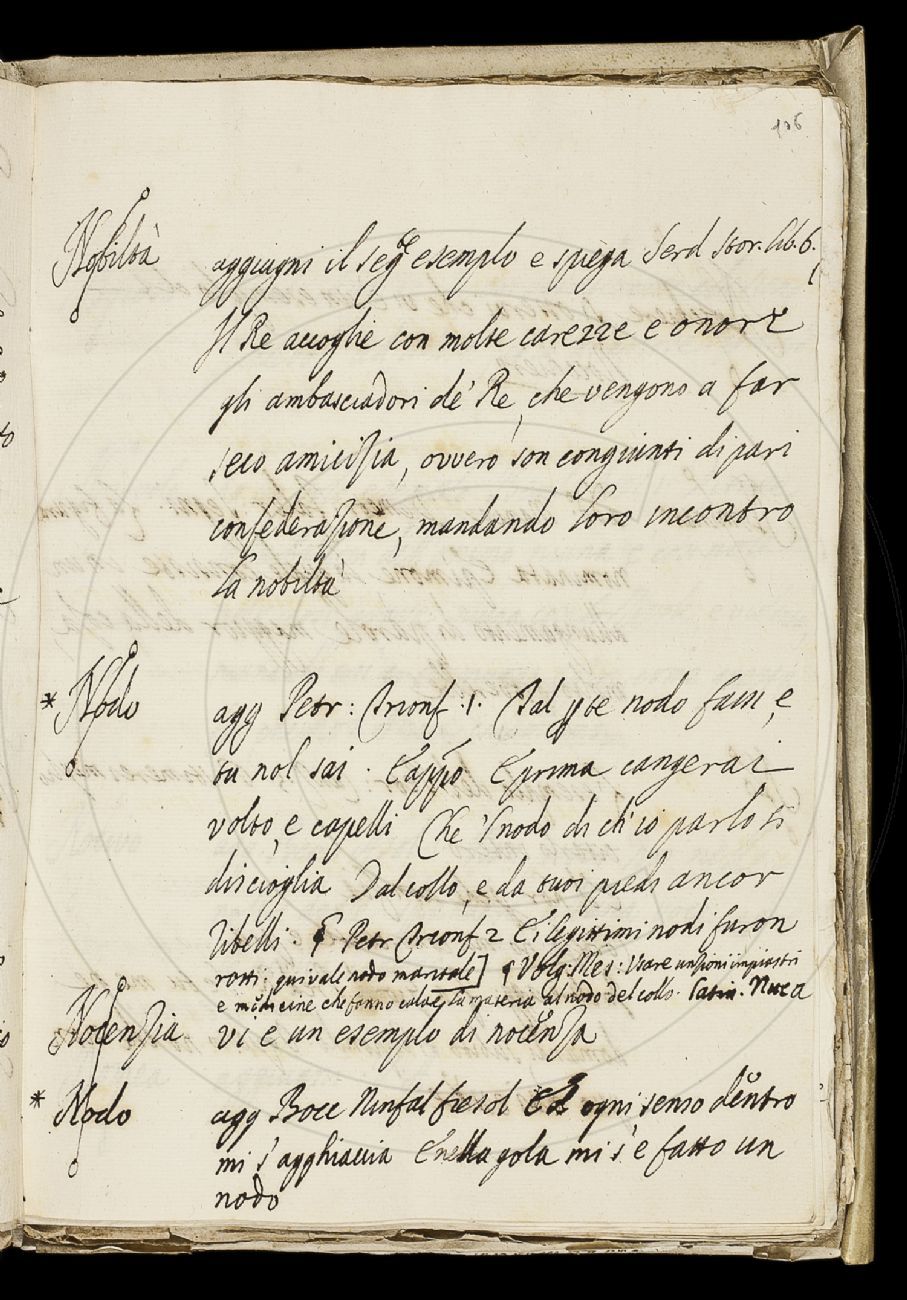 106
Nobiltà aggiugni il seg.e esemplo e spiega Serd stor. lib. 6.
Il Re accoglie con molte carezze e onori
gli ambasciadori de' Re, che vengono a far
seco amicizia, ovvero son congiunti di pari
confederazione, mandando loro incontro
la nobiltà
* Nodo agg Petr: Trionf .1. Tal nodo fassi, e
tu nol sai. E appo E prima cangerai
volto, e capelli Che 'l nodo di ch'io parlo si
discioglia Dal collo, e da tuoi piedi ancor
ribelli. Petr Trionf 2 E i legittimi nodi furon
rotti. qui vale nodo maritale] Volg. Mes: Usare unzioni impiastri
e medicine che fanno calare la materia al nodo del collo. Latin. Nuca
Nocenzia vi e un esemplo di nocenza
* Nodo agg Bocc Ninfal fiesol ogni senso dentro
mi s'agghiaccia E nella gola mi s'e fatto un
nodo